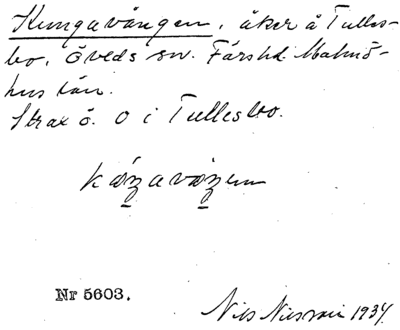 Kungavången, åker å Tulles-
bo, Öveds sn. Färs hd. Malmö-
hus län.
Strax ö. o i Tullesbo.
Nr 5603.
Nils Nilsson 1934.